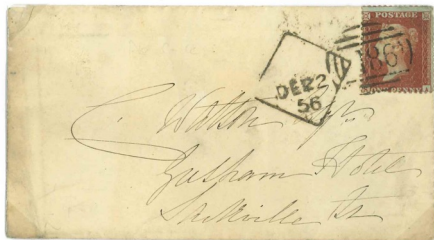 POSTAGE
186
DE 22
56
C Watson Esqr
Gresham Hotel
Sackville St
ONE PENNY